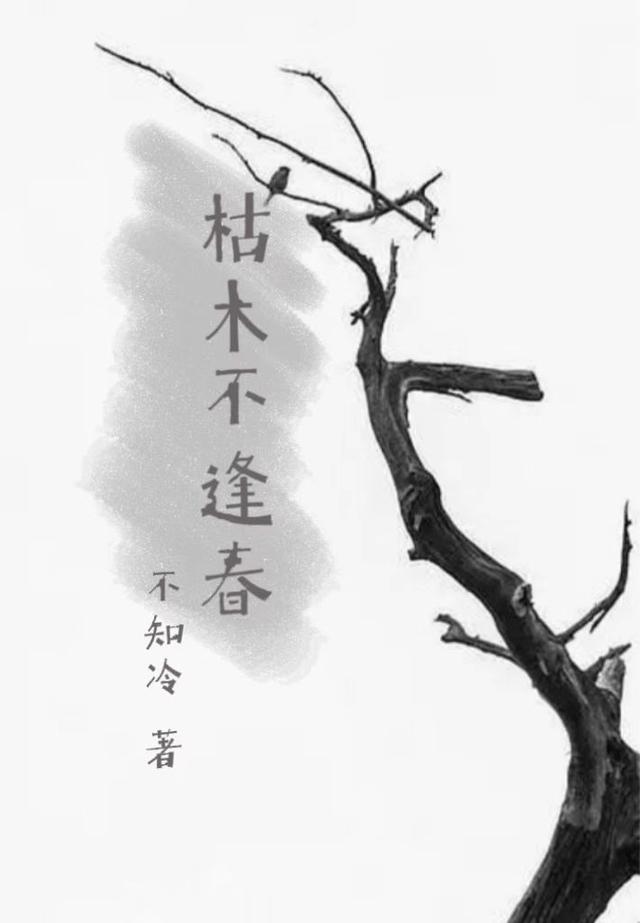 枯木不逢春
不知冷 著